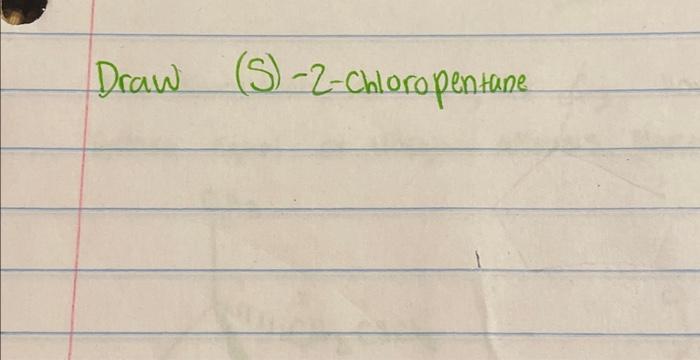 Draw (S)-2-chloropentane